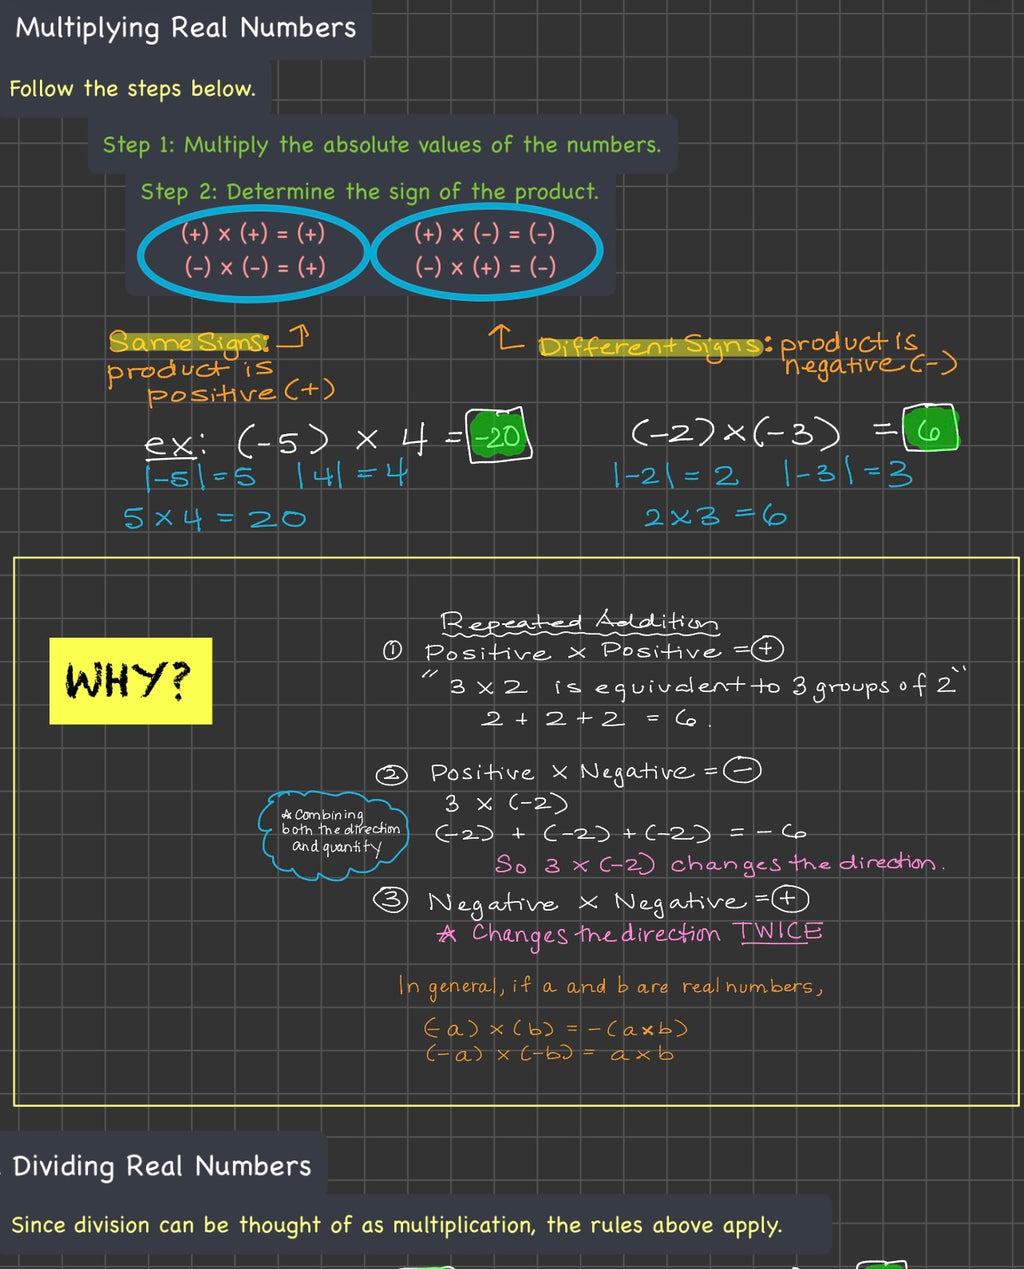 Multiplying Real Numbers
Follow the steps below.
Step 1: Multiply the absolute values of the numbers.
Step 2: Determine the sign of the product.
(+) × (+) = (+)
(-) × (-) = (+)
(+) × (-) = (-)
(-) × (+) = (-)
Same Signs:
product is
positive (+)
Different Signs: product is
negative (-)
ex: (-5) × 4 = -20
|-5| = 5 |4| = 4
5 × 4 = 20
(-2) × (-3) = 6
|-2| = 2 |-3| = 3
2 × 3 = 6
WHY?
Repeated Addition
① Positive × Positive = +
"3 × 2 is equivalent to 3 groups of 2"
2 + 2 + 2 = 6.
② Positive × Negative = -
3 × (-2)
(-2) + (-2) + (-2) = -6
So 3 × (-2) changes the direction.
☆ Combining
both the direction
and quantity
③ Negative × Negative = +
☆ Changes the direction TWICE
In general, if a and b are real numbers,
(-a) × (b) = -(a×b)
(-a) × (-b) = a × b
. Dividing Real Numbers
Since division can be thought of as multiplication, the rules above apply.